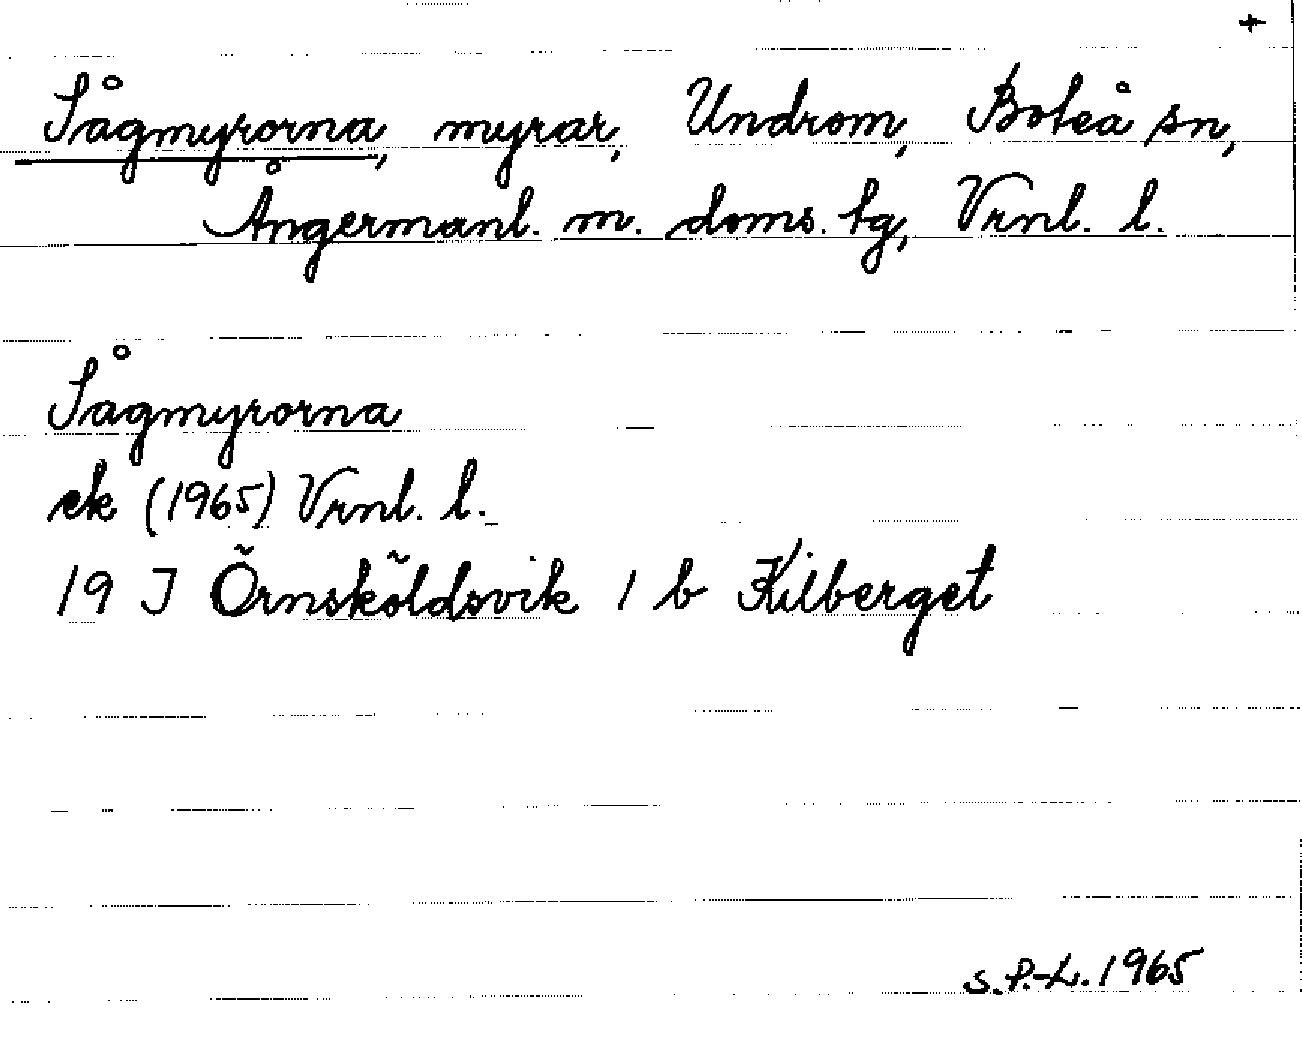 +
Sågmyrorna, myrar, Undrom, Boteå sn,
Ångermanl. m. doms. tg, Vrnl. l.
Sågmyrorna
ek (1965) Vrnl. l.
19 J Örnsköldsvik 1 b Kilberget
S.P.-L. 1965